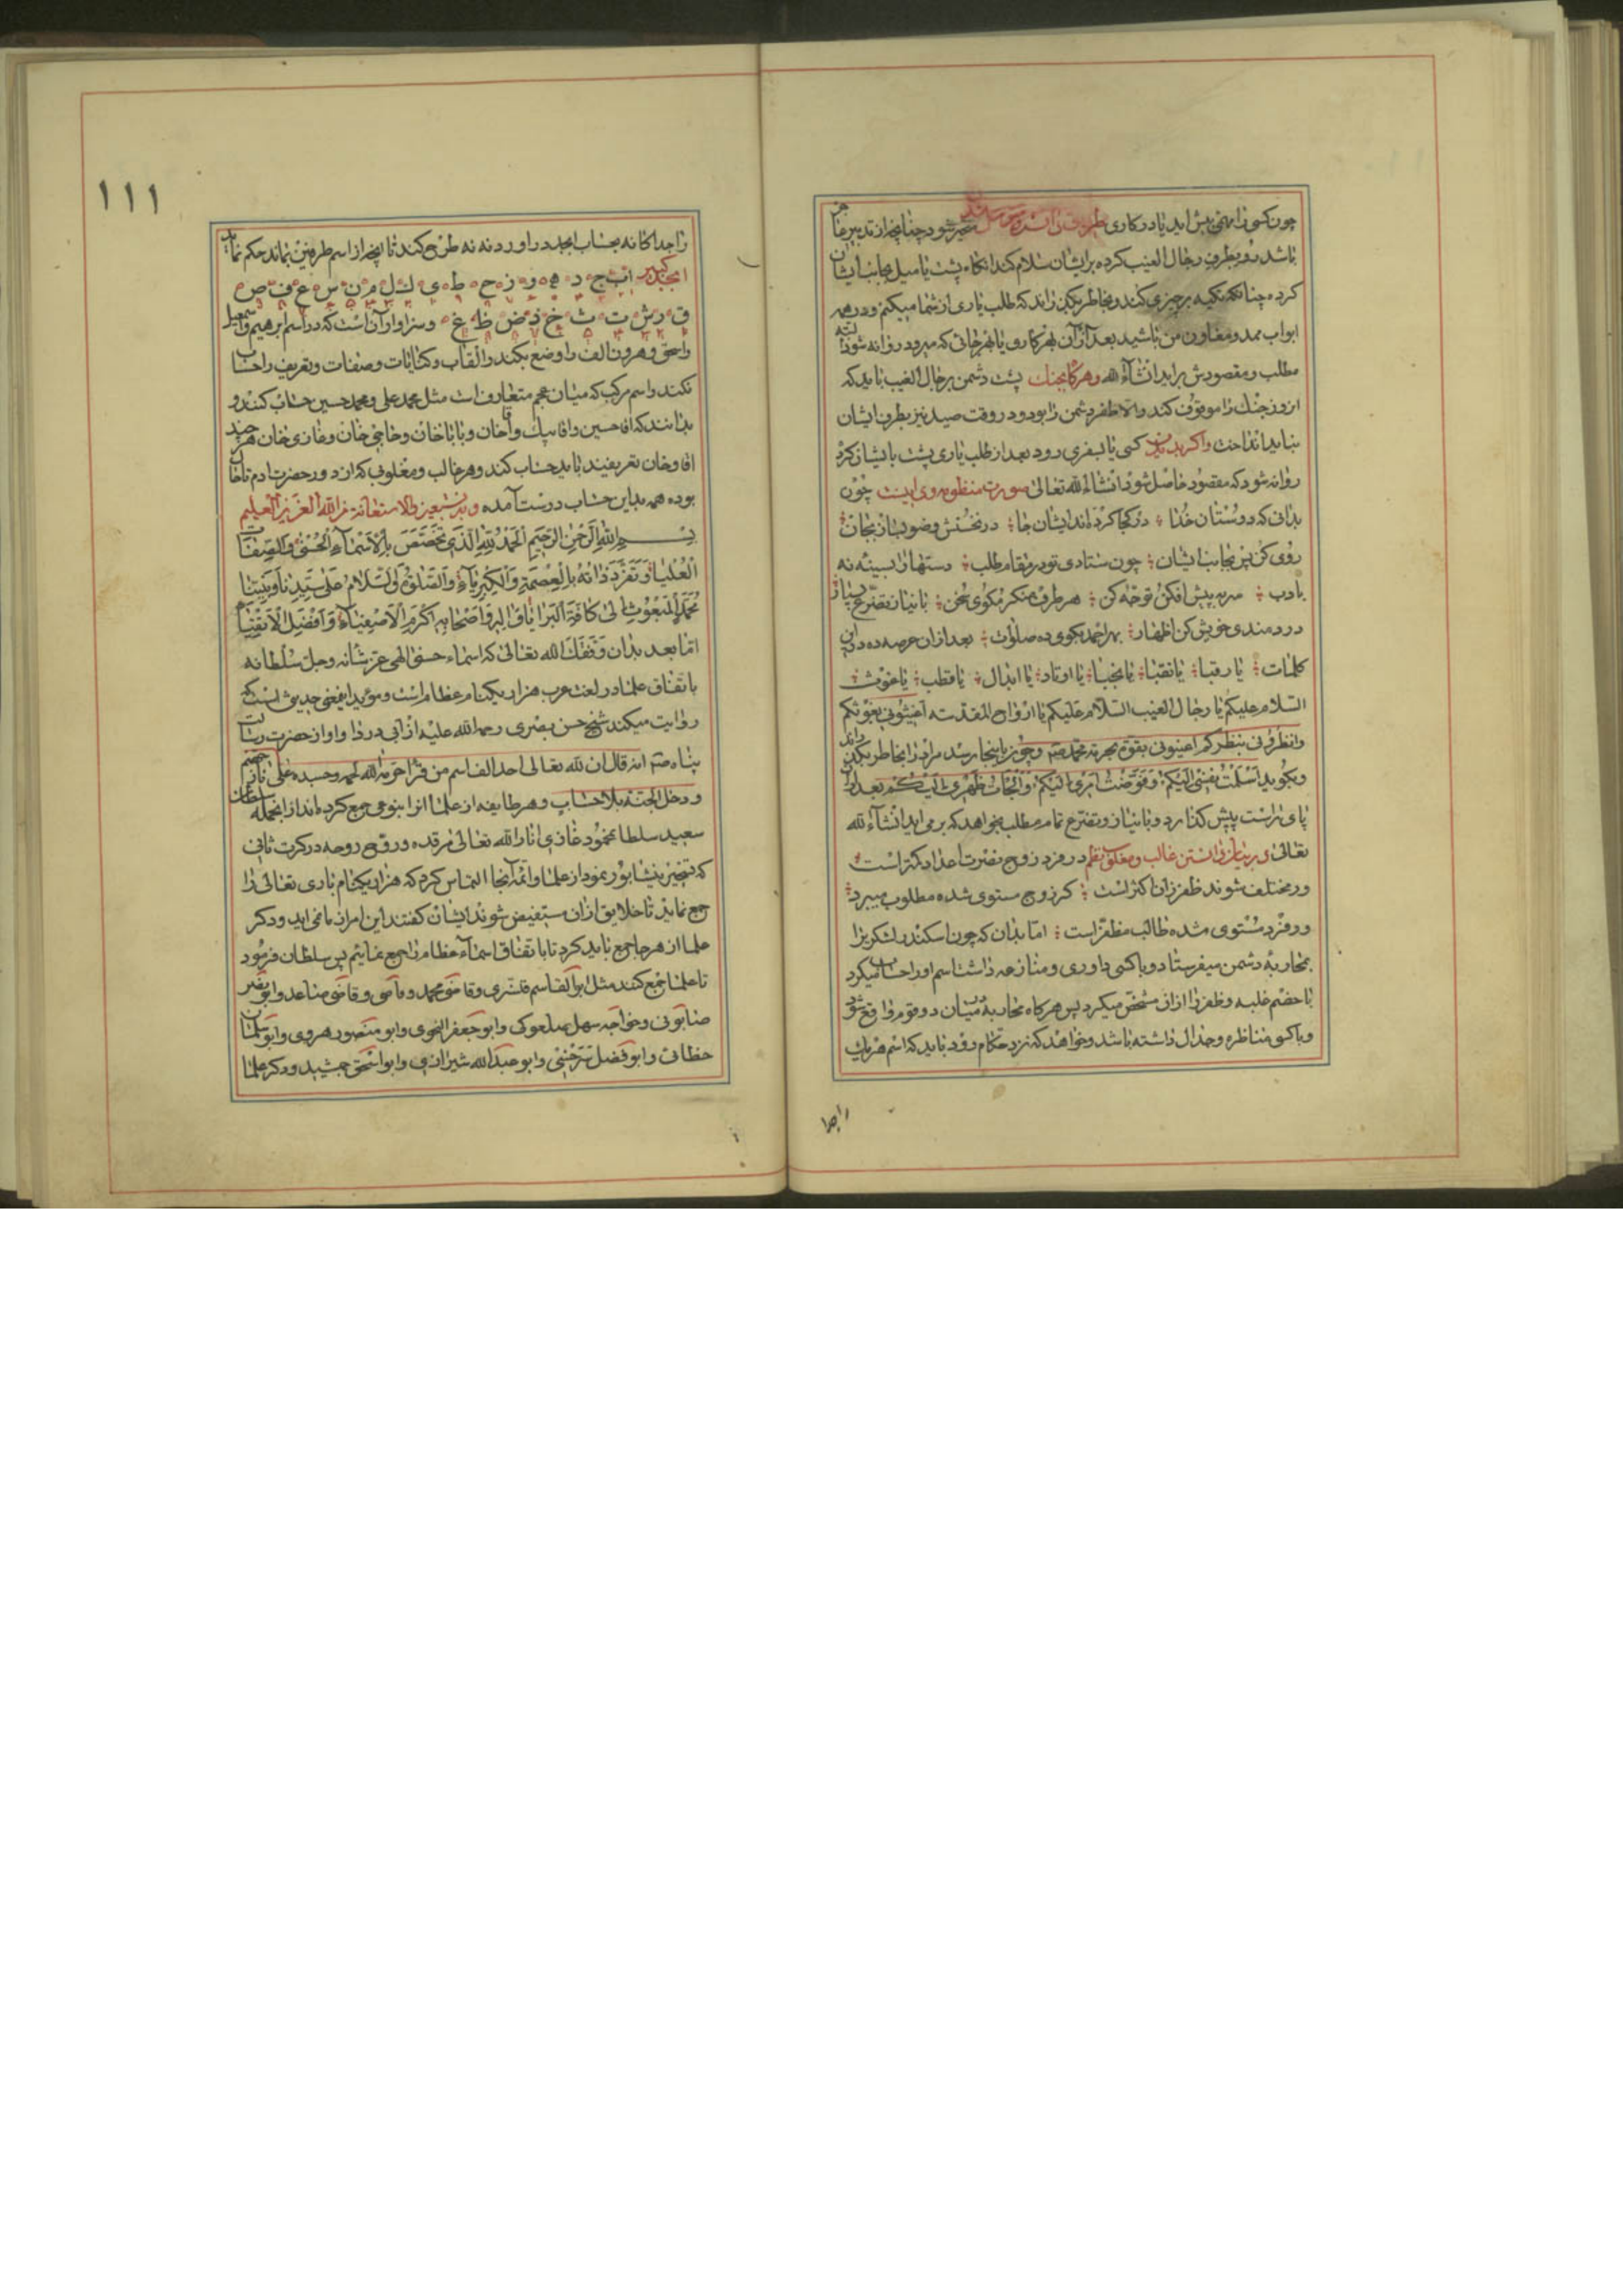 چون کسی را مهمی پیش اید یا در کاری متحیر شود چنانچه از تدبیر
باشد رو بطرف رجال الغیب کرده بر ایشان سلام کند انکاه پشت یا میل بجانب ایشان
کرده چنانکه تکیه بر چیزی کند و بخاطر بگذراند که طلب یاری از شما میکنم و در همه
ابواب ممد و معاون من باشید بعد از آن بهر کاری یا بهر جائی که میرود روانه شود البته
مطلب و مقصودش براید انشآء الله وهرکا بجنک پشت دشمن برجال الغیب باید که
ان روز جنك را موقوف کند والا ظفر دشمن را بود و در وقت صید نیز بطرف ایشان
نباید انداخت واکر بدیدن کسی یا بسفری رود بعد از طلب یاری پشت بایشان کرد
روانه شود که مقصود حاصل شود انشاء الله تعالی صورت منظومه وی اینست چون
بدانی که دوستان خدا در کجا کرده اند ایشان جا درنخستش وضو بساز بجان
روی کن پس بجانب ایشان چون ستادی تو در مقام طلب دستها را بسینه نه
بادب سر به پیش افکن توجه کن هر طرف منکر مکوی سخن با نیاز و تضرع بسیار
دردمندی خویش کن اظهار بهر احمد بکوی ده صلوات بعد ازان عرضه ده این
کلمات یا رقبا یا نقبا یا نجبا یا اوتاد یا ابدال یا قطب یا غوث
السلام علیکم یا رجال الغیب السلام علیکم یا ارواح المقدسه اغیثونی بغوثکم
وانظرونی بنظرکم اعینونی بقوة بحرمة محمد صلم وچون باینجا رسد مراد را بخاطر بگذراند
وبکوید اسلمت نفسی الیکم وفوضت امری الیکم والجات ظهری الیکم بعد ازان
پای راست پیش کذارد و با نیاز وتضرع تمام مطلب بخواهد که بر می اید انشآء الله
تعالی در بیان دانستن غالب ومغلوب نظم در فرد زوج نصرت اعداد کمتر است
ور مختلف شوند ظفر زان اکثر است کر زوج مستوی شده مطلوب میبرد
ور فرد مستوی شده طالب مظفر است اما بدان که چون اسکندر لشکر برا
بمحاربه دشمن میفرستاد و یا کسی داوری و منازعه داشت اسم او را حساب میکرد
با خصم غلبه وظفر را ازان مشخص میکرد پس هرکاه محاربه در میان دو قوم واقع شود
ویا کسی مناظره و جدال داشته باشد و خواهد که نزد حکام رود باید که اسم هر یك
را جدا
۱۱۱
را جدا کانه بحساب ابجد در اورد و نه نه طرح کند تا انچه از اسم طرفین بماند حکم نماید
ابجد کبیر اب ج د ه و ز ح ط ی ك ل م ن س ع ف ص
ق ر ش ت ث خ ذ ض ظ غ وسزاوار آن است که در اسم ابرهیم واسمعیل
واسحق وهرون الف را وضع بکند والقاب وکنایات وصفات وتعریف را حساب
نکند واسم مرکب که میان عجم متعارفست مثل محمد علی ومحمد حسین حساب کنند و
بدانند که اقا حسین واقا بیك واقا خان وبابا خان وحاجی خان وغازی خان هر چند
اقا وخان تعریفیند باید حساب کند وهر غالب ومغلوبی که از دور حضرت ادم تا حال
بوده همه باین حساب درست آمده وبه نستعین والاستعانة من الله العزیز العلیم
بسم الله الرحمن الرحیم الحمد لله الذی تخصص بالاسمآء الحسنی والصفات
العلیا وتفرد ذاته بالعصمة والکبریآء والصلوة والسلام علی سیدنا ونبینا
محمد المبعوث الی کافة البرایا واله واصحابه اکرم الاصفیآء وافضل الاتقیا
اما بعد بدان وفقك الله تعالی که اسماء حسنی الهی عز شانه وجل سلطانه
باتفاق علما در لغت عرب هزار ویکنام عظام است ومؤید این معنی حدیثی است که
روایت میکند شیخ حسن بصری رحمه الله علیه از ابی دردا واو از حضرت رسالت
پناه صلم انه قال ان لله تعالی احد الف اسم من قرأ حرمه الله لحمه وجسده علی نار جهنم
ودخل الجنة بلا حساب وهر طایفه از علما انرا بنوعی جمع کرده اند از انجمله سلطان
سعید سلطان محمود غازی انار الله تعالی مرقده وروح روحه در کرت ثانی
که تسخیر نیشابور نمود از علما وائمه آنجا التماس کرد که هزار ویکنام باری تعالی را
جمع نماید تا خلایق ازان مستفیض شوند ایشان کفتند این امر از ما نمی اید ودکر
علما از هر جا جمع باید کرد تا باتفاق اسمآء عظام را جمع نمائیم پس سلطان فرمود
تا علما جمع کنند مثل ابو القاسم قشری وقاضی محمد وقاضی صاعد وابو نصر
صابونی وخواجه سهل صعلوکی وابو جعفر النحوی وابو منصور هروی وابو سلمان
خطابی وابو فضل سرخسی وابو عبد الله شیرازی وابو اسحق جمشید ودکر علما